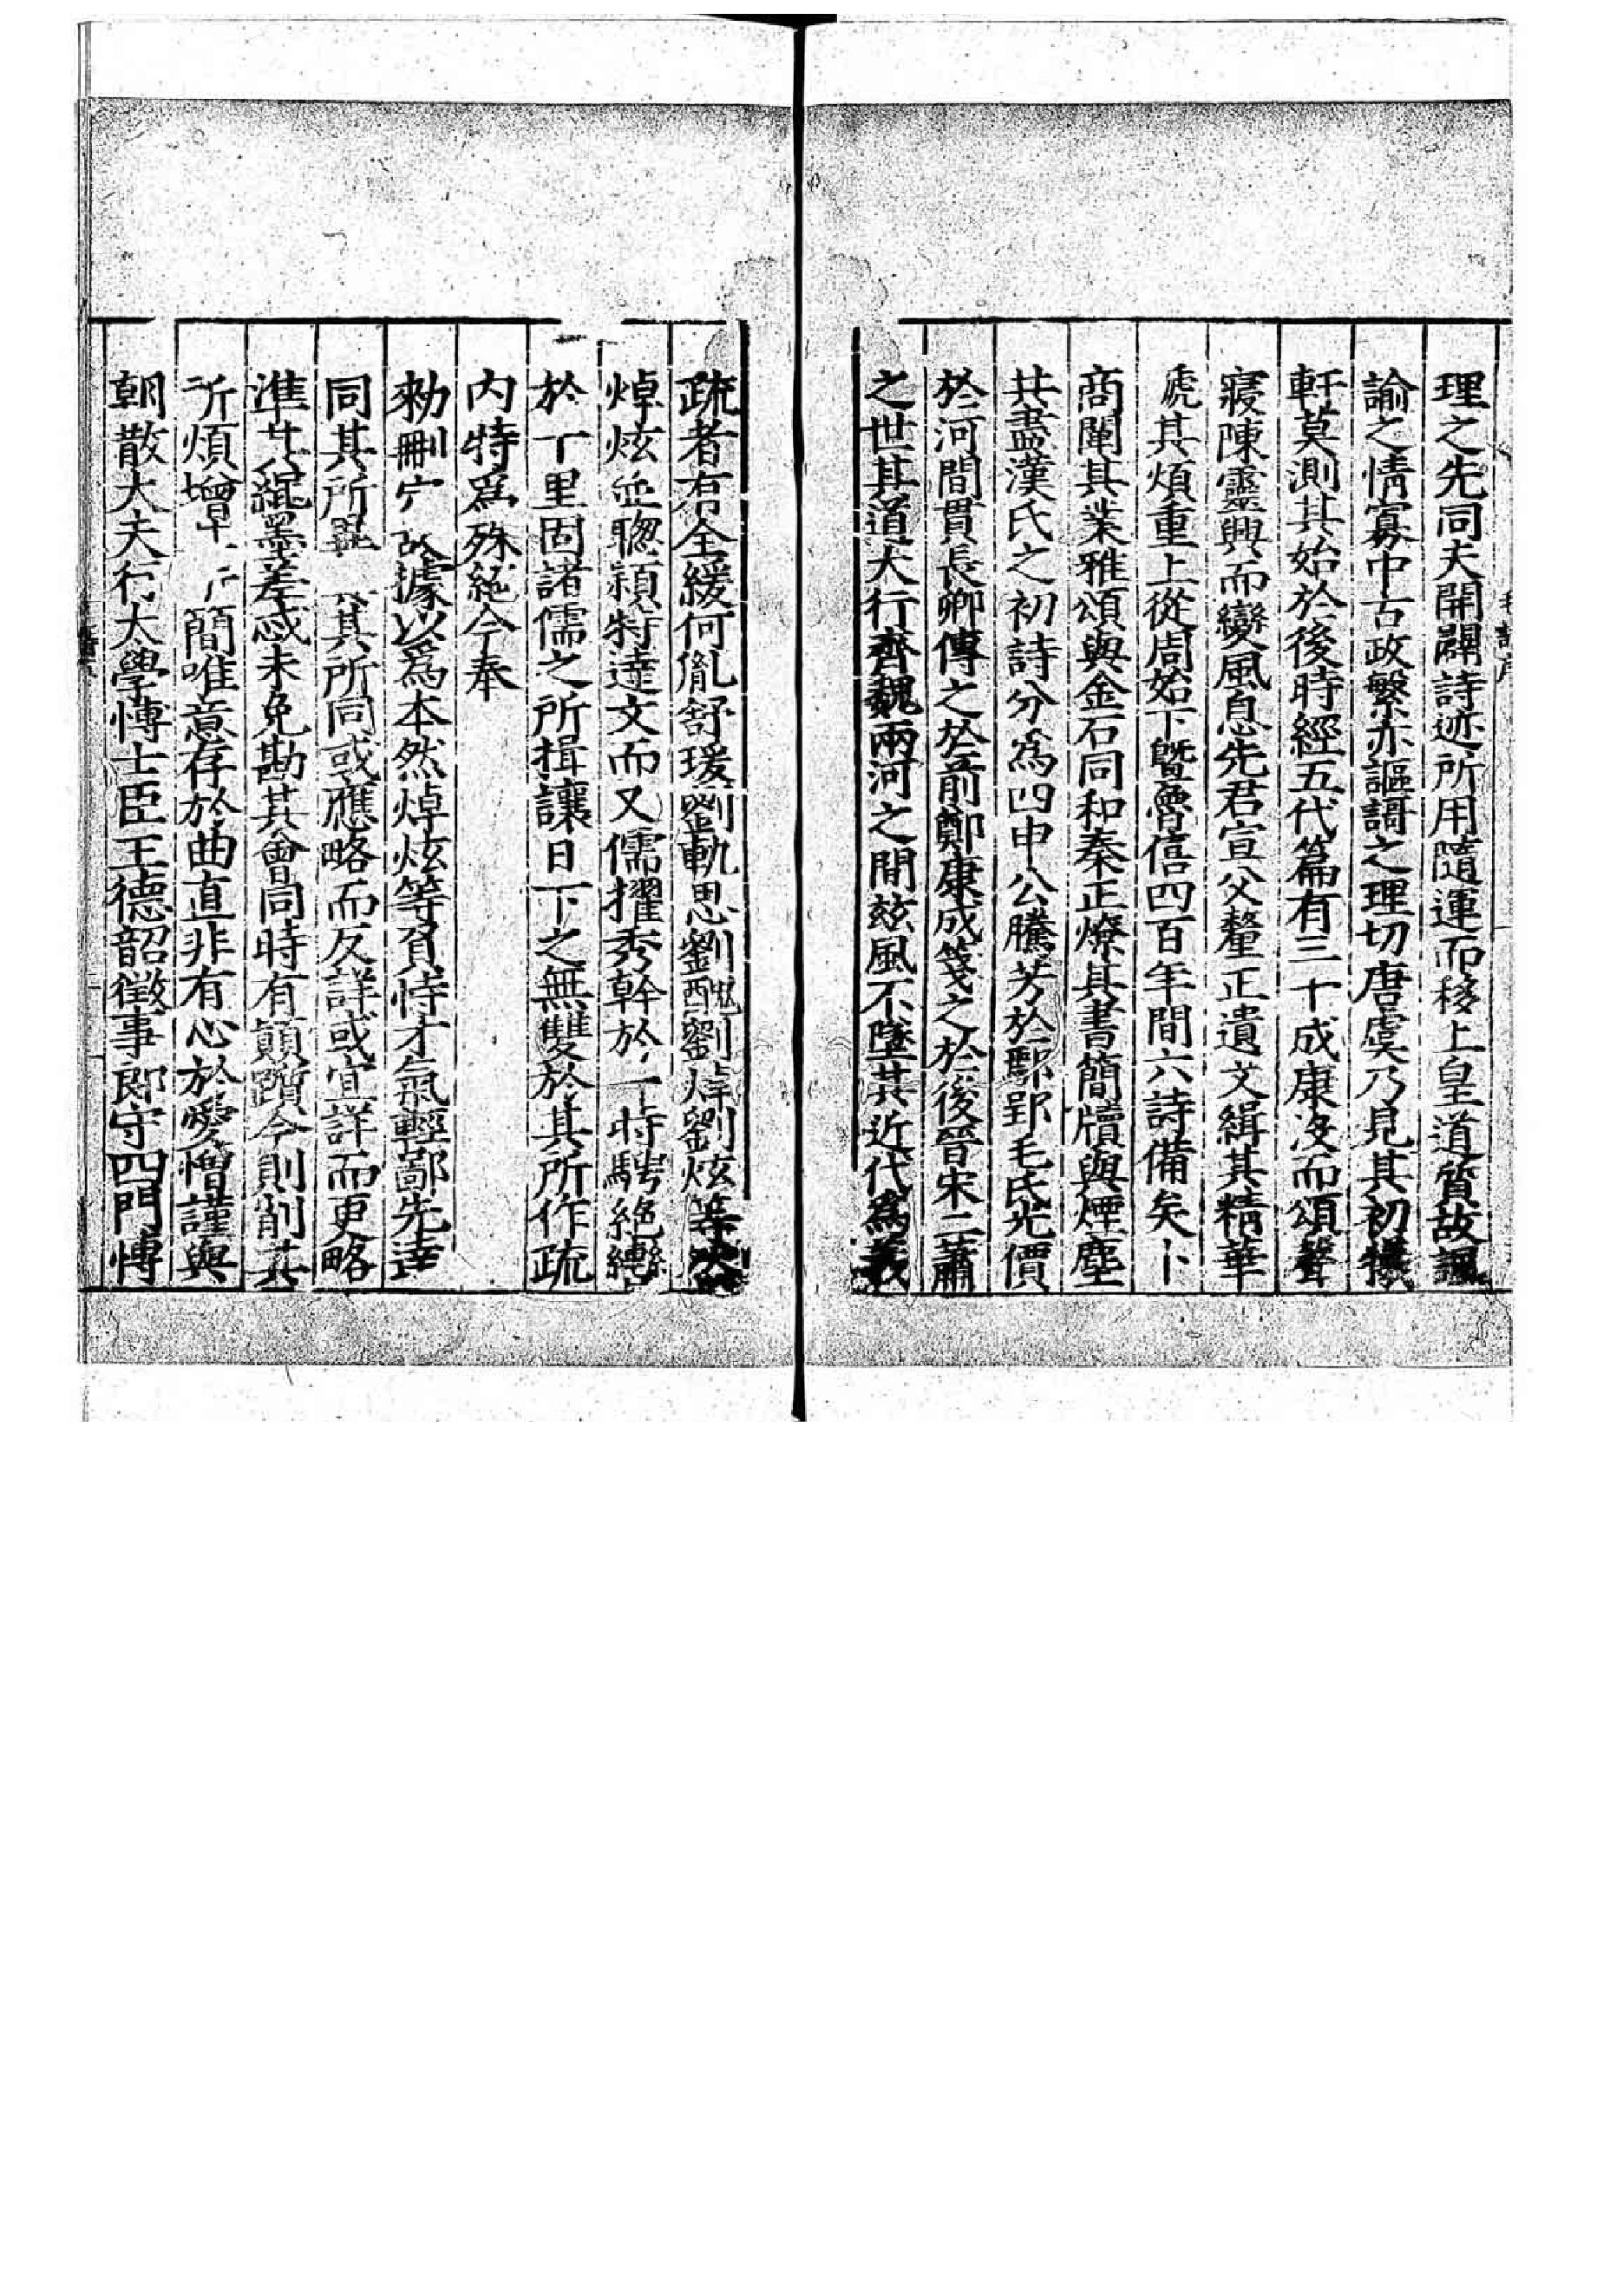 理之先同夫開闢詩迹所用隨運而移上皇道質故諷
諭之情寡中古政繁亦謳謌之理切唐虞乃見其初犧
軒莫測其始於後時經五代篇有三十成康沒而頌聲
寢陳靈興而變風息先君宣父釐正遺文緝其精華
褫其煩重上從周始下曁魯僖四百年間六詩備矣卜
商闡其業雅頌與金石同和秦正燎其書簡牘與煙塵
共盡漢氏之初詩分爲四申公騰芳於鄢郢毛氏光價
於河間貫長卿傳之於前鄭康成箋之於後晉宋二蕭
之世其道大行齊魏兩河之間玆風不墜其近代爲義
疏者有全緩何胤舒瑗劉軌思劉醜劉焯劉炫等然
焯炫並聦穎特達文而又儒擢秀幹於一時騁絶轡
於 里固諸儒之所揖讓日下之無雙於其所作疏
內特爲殊絶今奉
勑刪 據以爲本然焯炫等負恃才氣輕鄙先達
同其所異 其所同或應略而反詳或宜詳而更略
準其繩墨差忒未免勘其會同時有顚躓今則削其
所煩增 簡唯意存於曲直非有心於愛憎謹與
朝散大夫行太學博士臣王德韶徵事郎守四門博